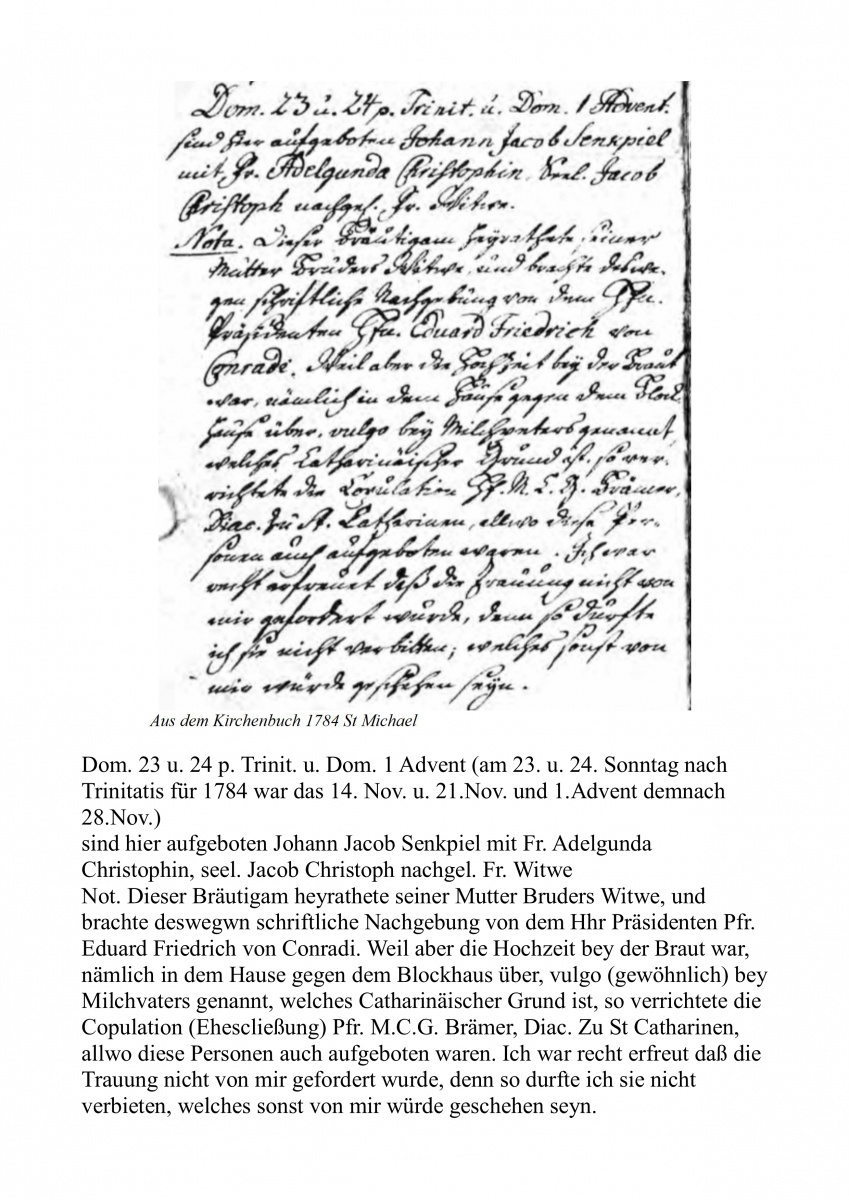 Dom. 23 u. 24 p. Trinit. u. Dom. 1 Advent.
sind hier aufgeboten Johann Jacob Senkpiel
mit Fr. Adelgunda Christophin, Seel. Jacob
Christoph nachgel. Fr. Witwe.
Nota. Dieser Bräutigam heyrathete seiner
Mutter Bruders Witwe, und brachte deswe-
gen schriftliche Nachgebung von dem Hhn.
Präsidenten Hhn. Eduard Friedrich von
Conradi. Weil aber die Hochzeit bey der Braut
war, nämlich in dem Hause gegen dem Block
hause über, vulgo bey Milchveters genannt,
welches Catharinäischer Grund ist, so ver-
richtete die Copulation M. C. G. Brämer,
Diac. zu St. Catharinen, allwo diese Per-
sonen auch aufgeboten waren. Ich war
recht erfreuet daß die Trauung nicht von
mir gefordert wurde, denn so durfte
ich sie nicht verbitten; welches sonst von
mir würde geschehen seyn.
Aus dem Kirchenbuch 1784 St Michael
Dom. 23 u. 24 p. Trinit. u. Dom. 1 Advent (am 23. u. 24. Sonntag nach
Trinitatis für 1784 war das 14. Nov. u. 21.Nov. und 1.Advent demnach
28.Nov.)
sind hier aufgeboten Johann Jacob Senkpiel mit Fr. Adelgunda
Christophin, seel. Jacob Christoph nachgel. Fr. Witwe
Not. Dieser Bräutigam heyrathete seiner Mutter Bruders Witwe, und
brachte deswegwn schriftliche Nachgebung von dem Hhr Präsidenten Pfr.
Eduard Friedrich von Conradi. Weil aber die Hochzeit bey der Braut war,
nämlich in dem Hause gegen dem Blockhaus über, vulgo (gewöhnlich) bey
Milchvaters genannt, welches Catharinäischer Grund ist, so verrichtete die
Copulation (Ehescließung) Pfr. M.C.G. Brämer, Diac. Zu St Catharinen,
allwo diese Personen auch aufgeboten waren. Ich war recht erfreut daß die
Trauung nicht von mir gefordert wurde, denn so durfte ich sie nicht
verbieten, welches sonst von mir würde geschehen seyn.